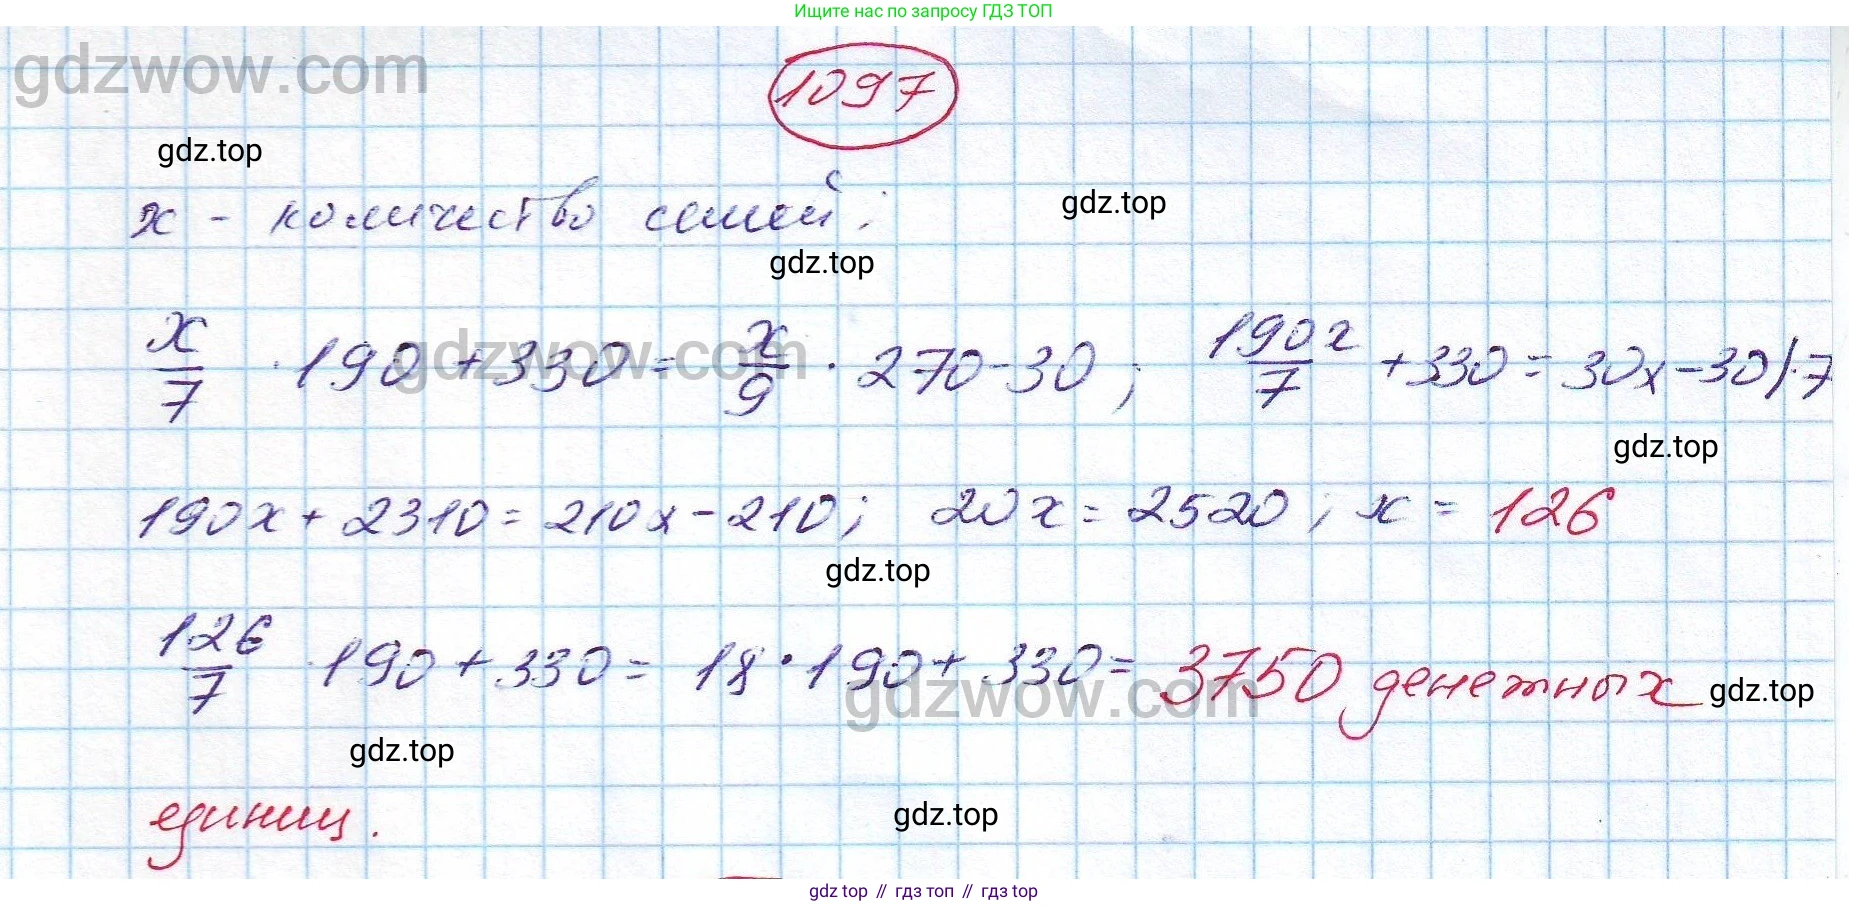 Ищите нас по запросу ГДЗ ТОП
gdzwow.com
1097
gdz.top
x - количество семей;
gdz.top
gdz.top
x/7 · 190 + 330 = x/9 · 270 - 30 ; 190x/7 + 330 = 30x - 30 | · 7
gdzwow.com
gdz.top
190x + 2310 = 210x - 210 ; 20x = 2520 ; x = 126
gdz.top
126/7 · 190 + 330 = 18 · 190 + 330 = 3750 денежных
gdzwow.com
gdz.top
gdz.top
единиц.
gdz.top
gdz top // гдз топ // гдз top